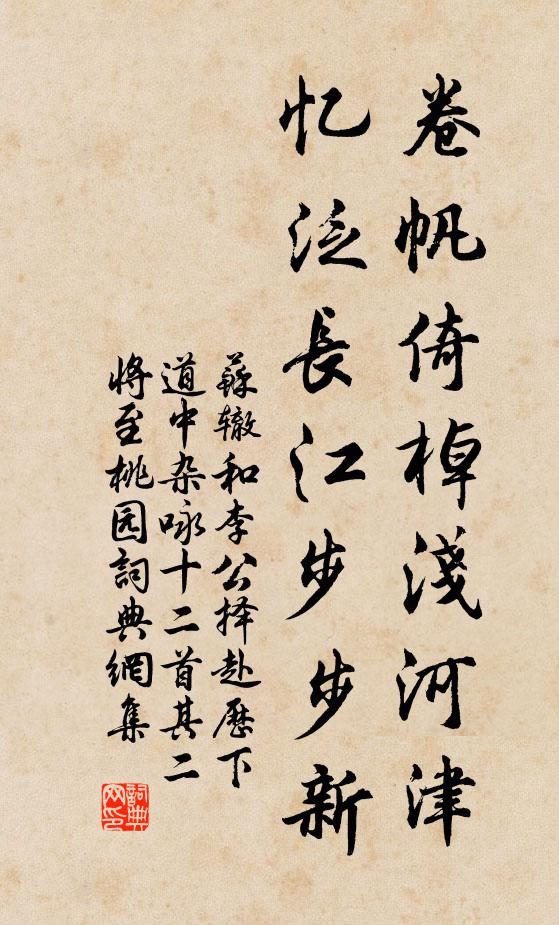 卷帆倚棹淺河津
忆泛長江步步新
蘇辙和李公择赴歷下
道中杂咏十二首其二
将至桃园詞典網集
詞典网印